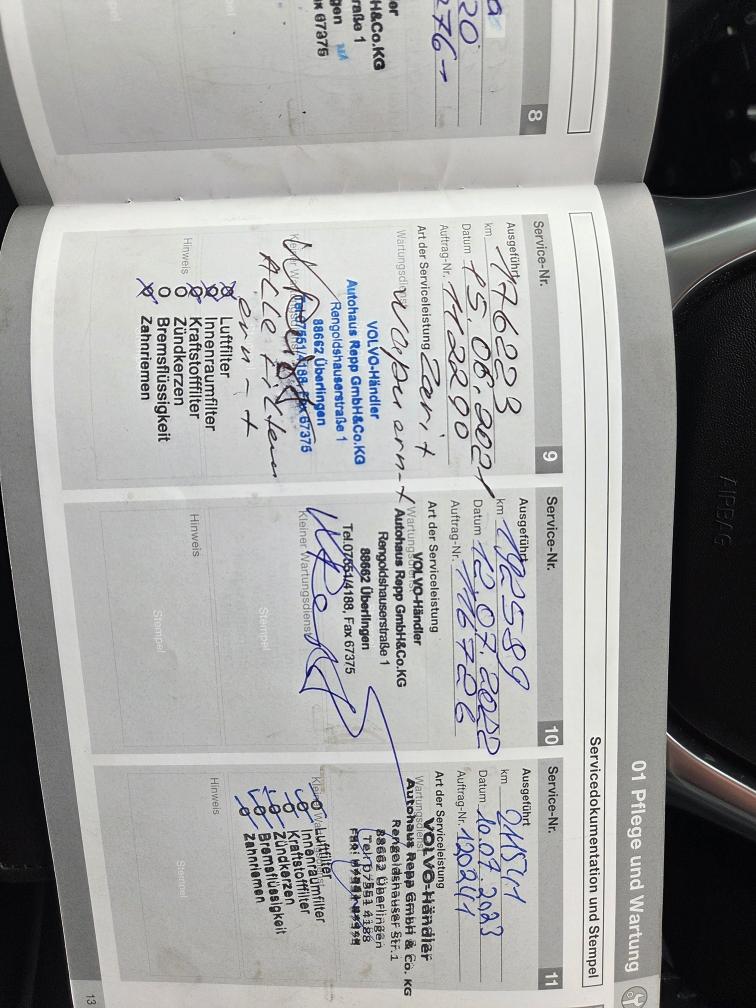 01 Pflege und Wartung
Servicedokumentation und Stempel
8
Service-Nr. 9
Ausgeführt
km 176223
Datum 15.06.2021
Auftrag-Nr. 112290
Art der Serviceleistung
Wartungsdienst
VOLVO-Händler
Autohaus Repp GmbH&Co.KG
Rengoldshauserstraße 1
88662 Überlingen
Tel.07551/4188, Fax 67375
Kleiner
Alle Filter
Hinweis
Luftfilter
Innenraumfilter
Kraftstofffilter
Zündkerzen
Bremsflüssigkeit
Zahnriemen
Service-Nr. 10
Ausgeführt
km 192589
Datum 12.07.2022
Auftrag-Nr. 116726
Art der Serviceleistung
Wartungsdienst
VOLVO-Händler
Autohaus Repp GmbH&Co.KG
Rengoldshauserstraße 1
88662 Überlingen
Tel.07551/4188, Fax 67375
Kleiner Wartungsdienst
Stempel
Hinweis
Stempel
Service-Nr. 11
Ausgeführt
km 211541
Datum 10.07.2023
Auftrag-Nr. 120241
Art der Serviceleistung
Wartungsdienst
VOLVO-Händler
Autohaus Repp GmbH & Co. KG
Rengoldshauser Str. 1
88662 Überlingen
Tel. 07551 4188
Luftfilter
Innenraumfilter
Kraftstofffilter
Zündkerzen
Bremsflüssigkeit
Zahnriemen
Hinweis
Stempel
13
AIRBAG